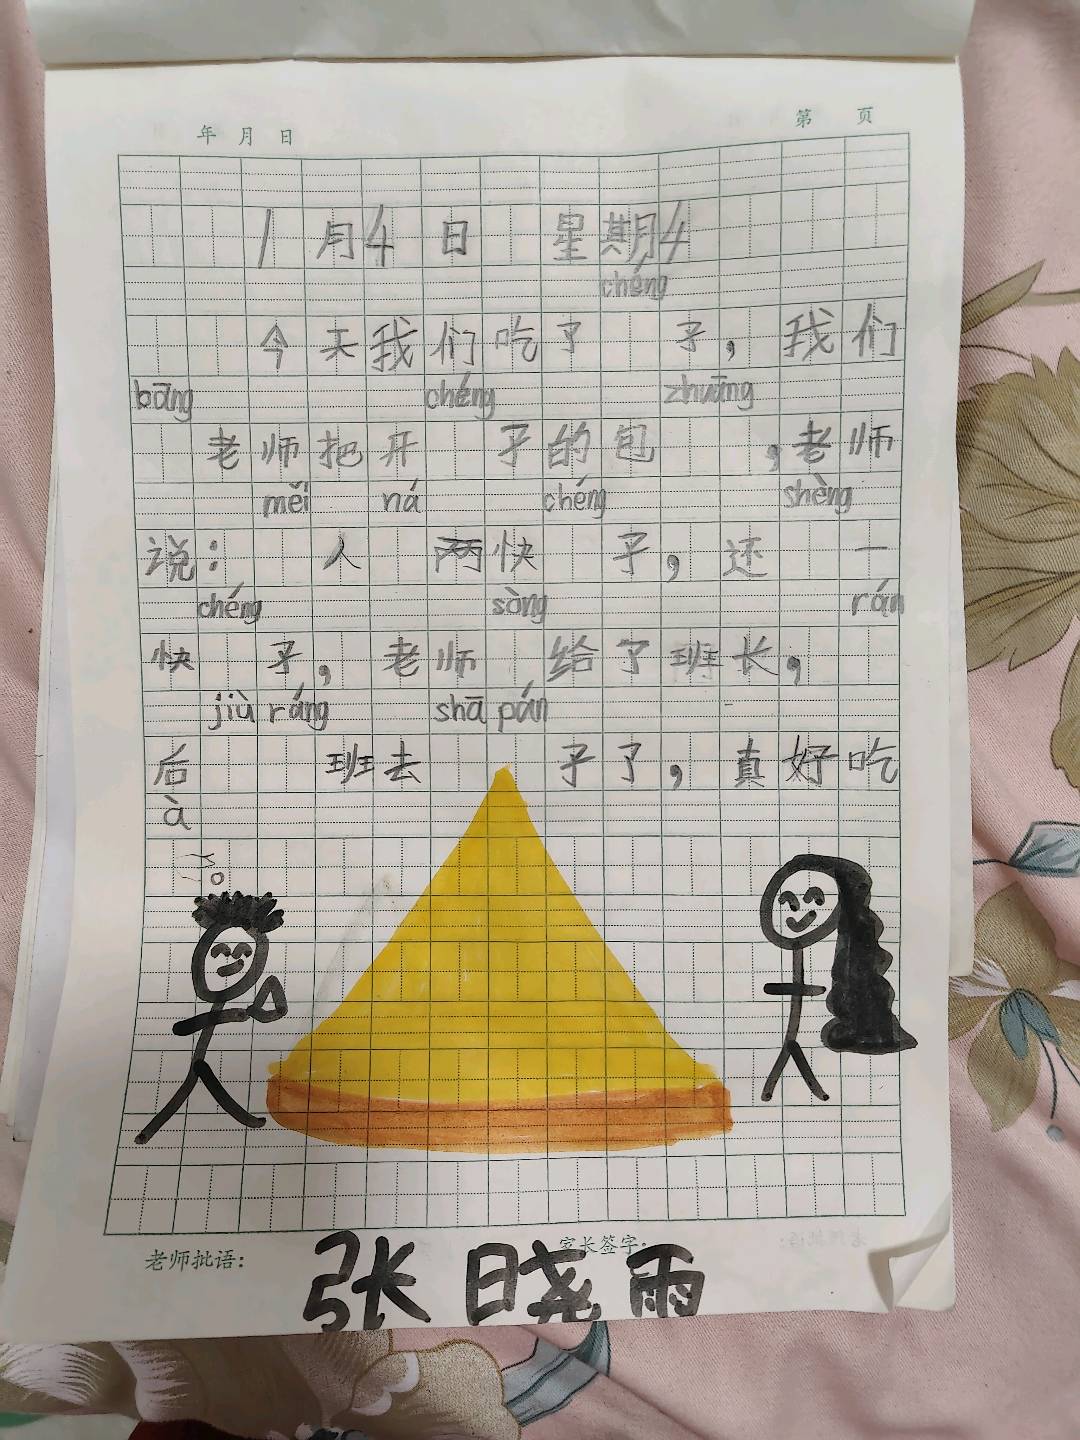 年 月 日 第 页
1月4日 星期4
chéng
今天我们吃了 子，我们
bāng chéng zhuāng
老师把开 子的包 ，老师
měi ná chéng shèng
说： 人 两快 子，还 一
chéng sòng rán
快 子，老师 给了班长，
jiù ráng shā pán
后 班去 子了，真好吃
à
老师批语： 家长签字：
张晓雨